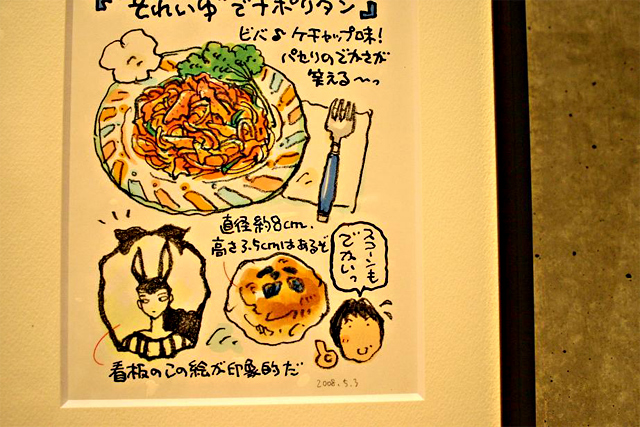 『それいゆ”でナポリタン』
ビバ♪ケチャップ味!
パセリのでかさが
笑える〜っ
直径約8cm.
高さ3.5cmはあるぞ
スコーンも
でかいっ
看板のこの絵が印象的だ
2008.5.3